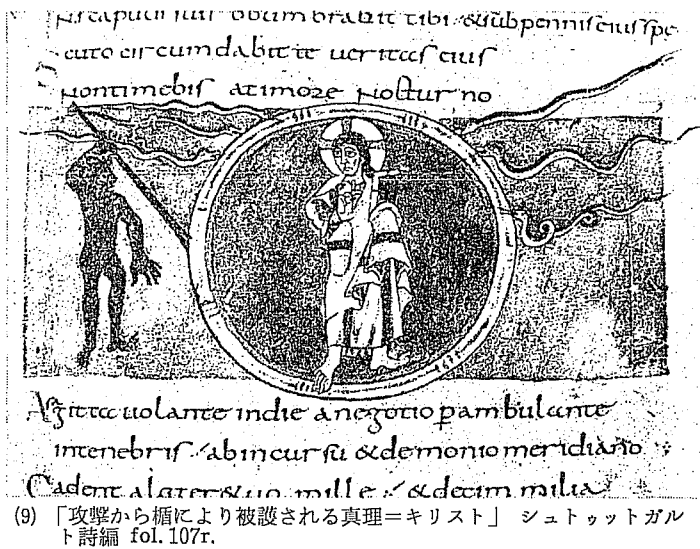 scapulis suis obumbrabit tibi. & sub pennis eius spe
cuto circumdabit te ueritas eius
Non timebis a timore nocturno
Agitta uolante in die a negotio pambulante
in tenebris / ab incursu & demonio meridiano ;
Cadent a latere tuo mille / & decim milia
(9) 「攻撃から楯により被護される真理＝キリスト」 シュトゥットガル
ト詩編 fol. 107r.